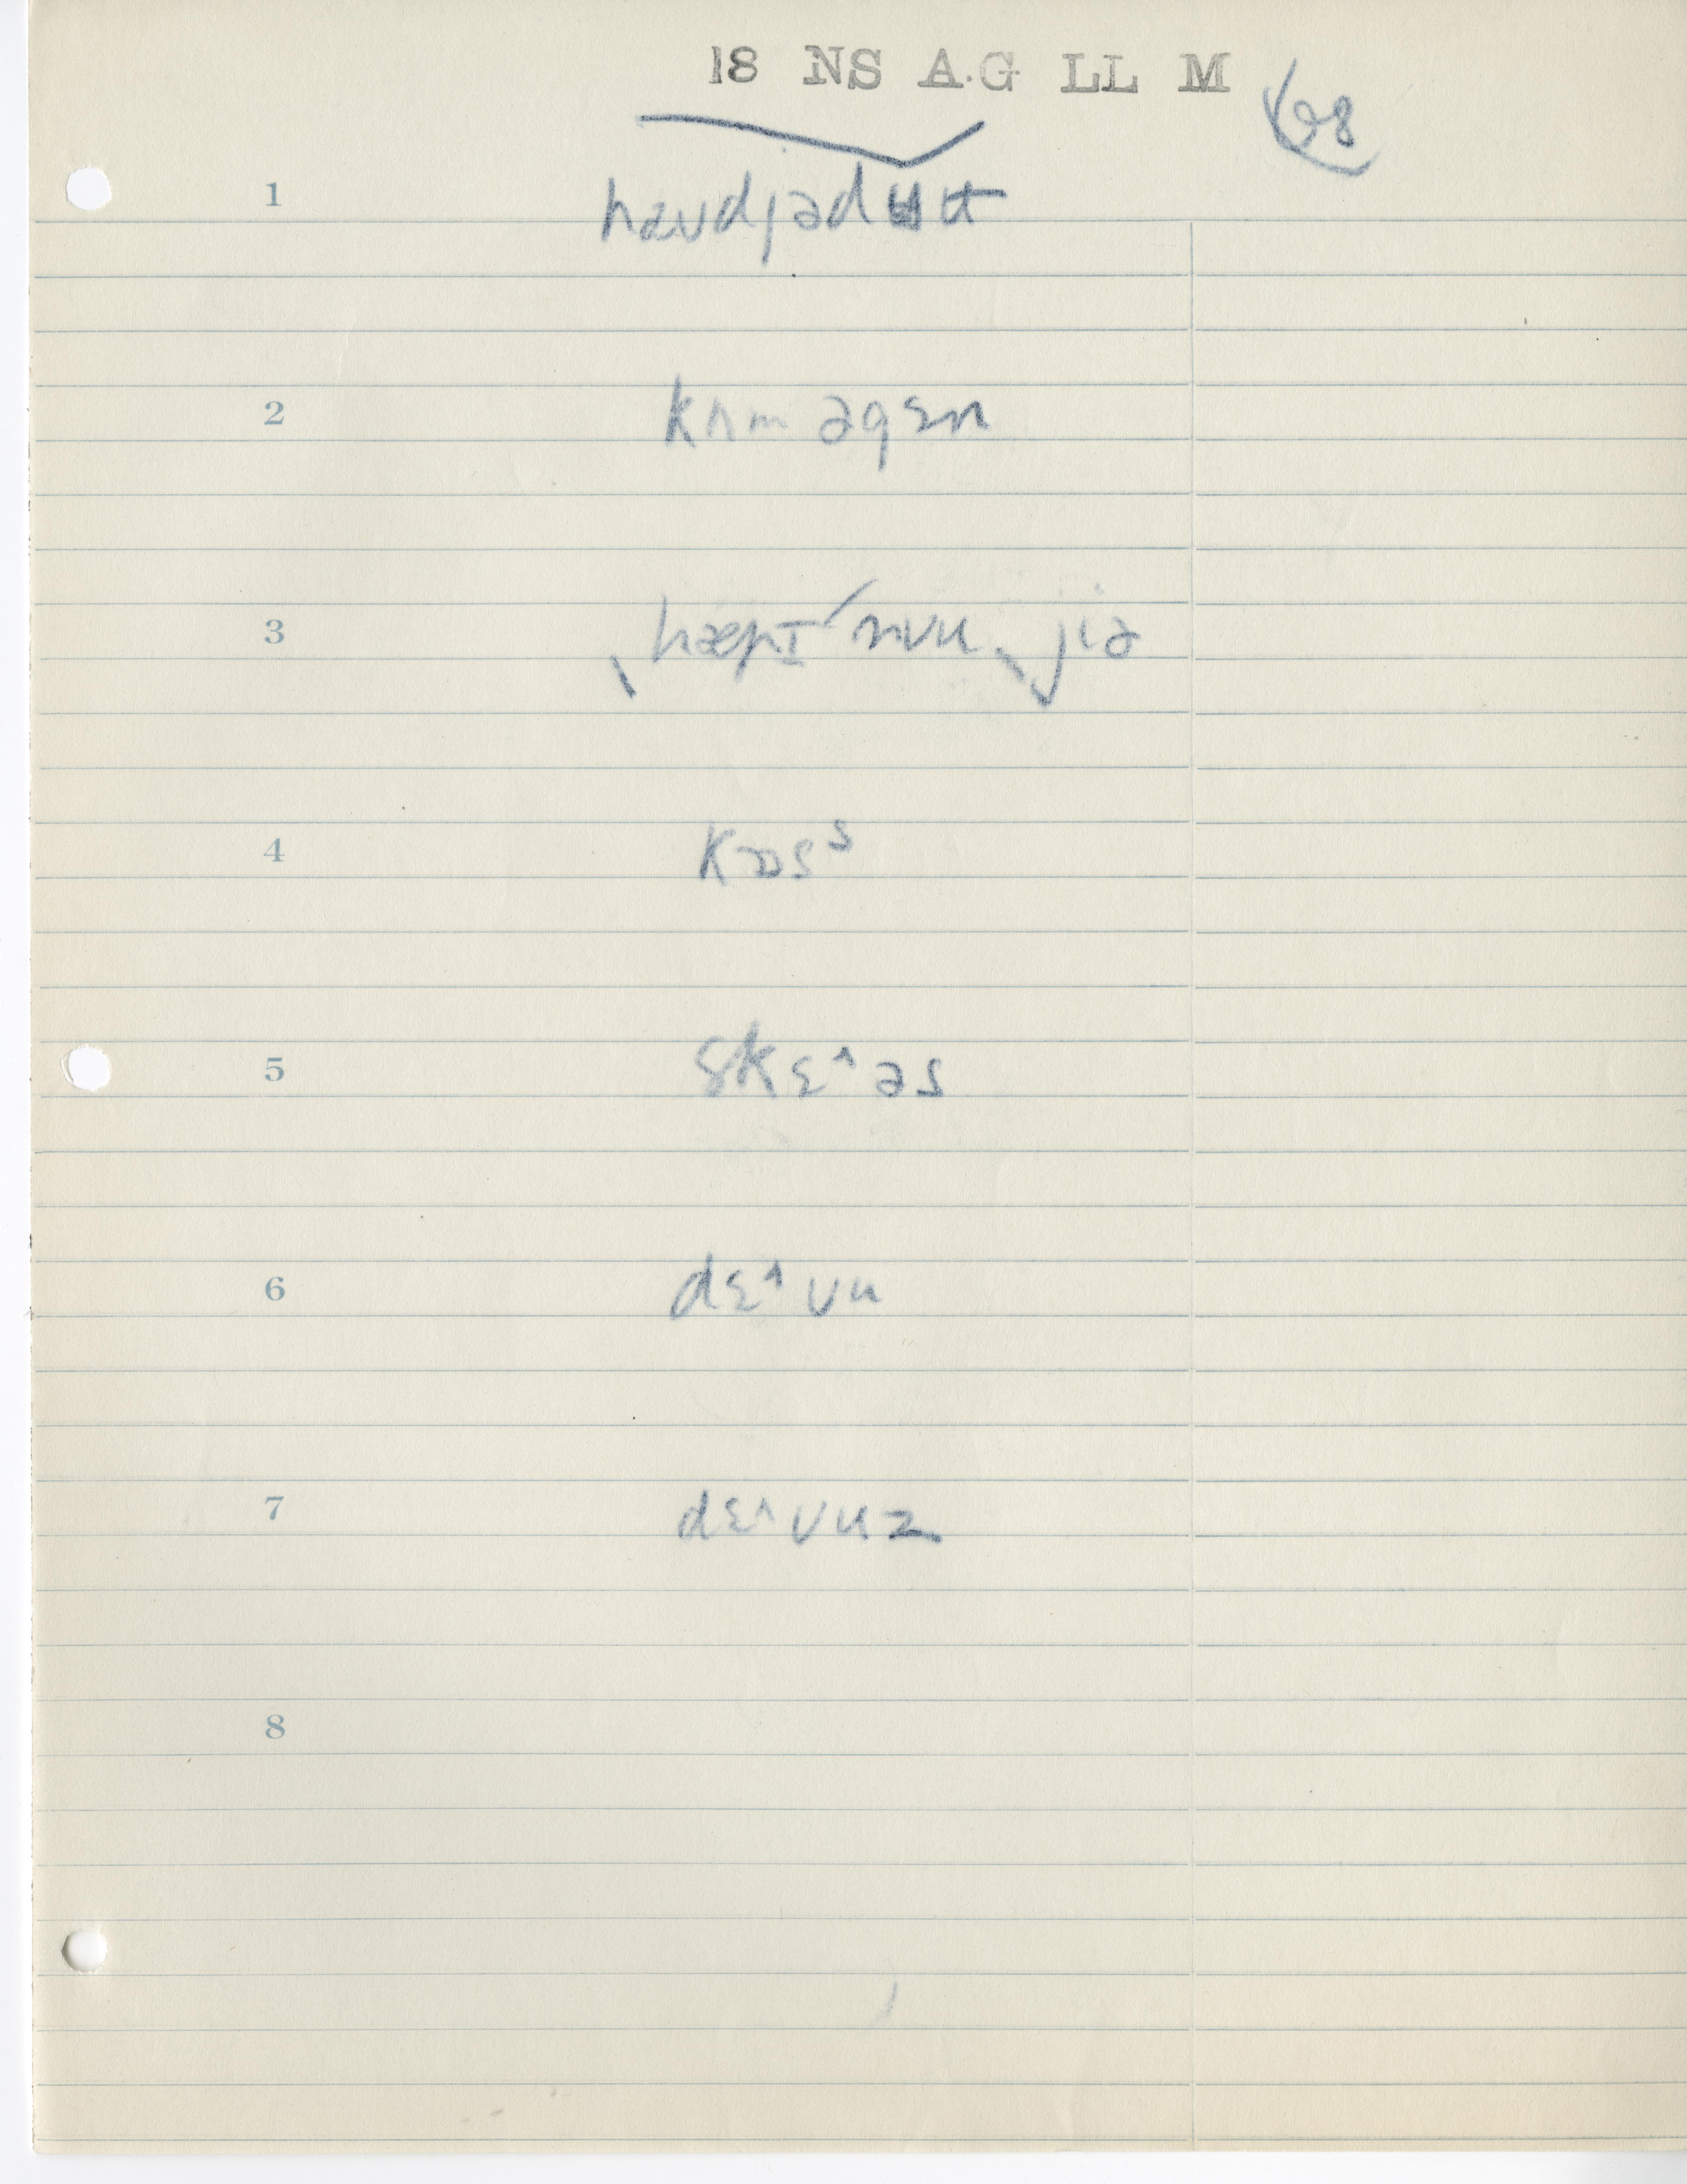 18 NS A.G LL M 68
1 haudjədʉʉ
2 kʌm əgɛn
3 hæpɪ nuu jiə
4 kɒsˢ
5 skɛ^əs
6 dɛ^vu
7 dɛ^vuz
8